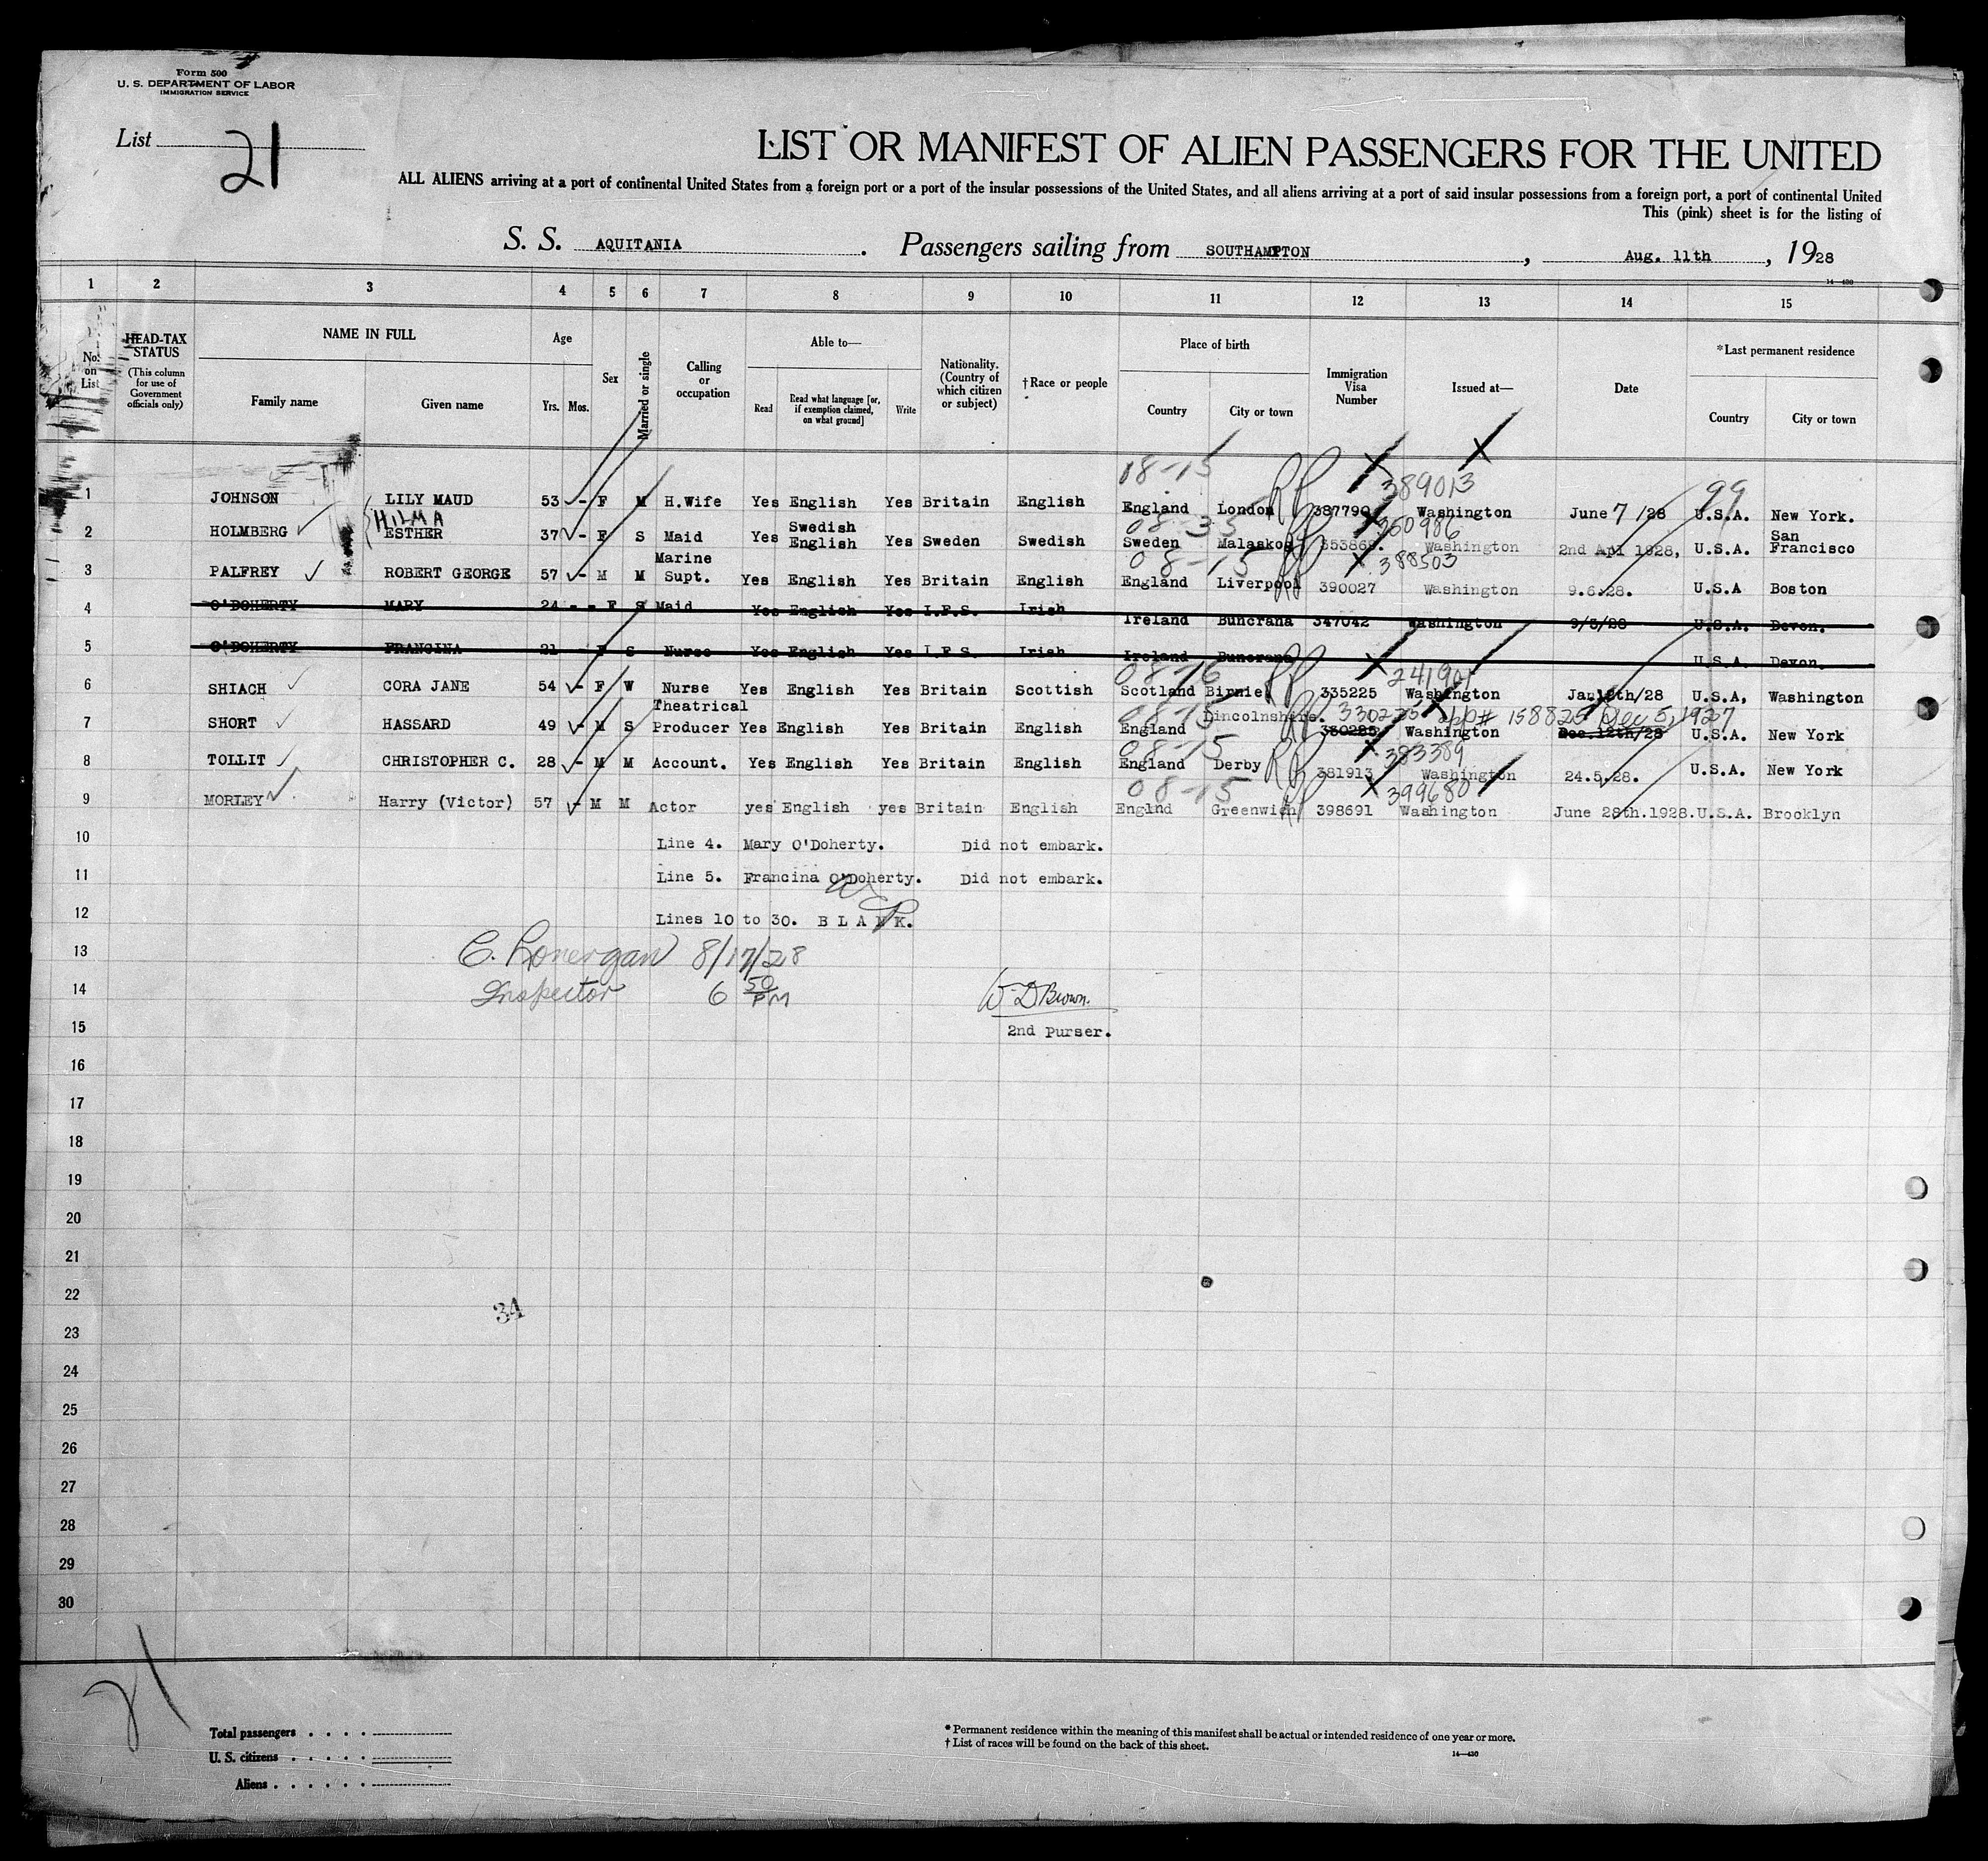 Form 500
U. S. DEPARTMENT OF LABOR
IMMIGRATION SERVICE
List 21
LIST OR MANIFEST OF ALIEN PASSENGERS FOR THE UNITED
ALL ALIENS arriving at a port of continental United States from a foreign port or a port of the insular possessions of the United States, and all aliens arriving at a port of said insular possessions from a foreign port, a port of continental United
This (pink) sheet is for the listing of
S. S. AQUITANIA. Passengers sailing from SOUTHAMPTON, Aug. 11th, 1928
14—430
1 2 3 4 5 6 7 8 9 10 11 12 13 14 15
No. on List
HEAD-TAX STATUS
(This column for use of Government officials only)
NAME IN FULL
Family name
Given name
Age
Yrs. Mos.
Sex
Married or single
Calling or occupation
Able to—
Read
Read what language [or, if exemption claimed, on what ground]
Write
Nationality. (Country of which citizen or subject)
†Race or people
Place of birth
Country
City or town
Immigration Visa Number
Issued at—
Date
*Last permanent residence
Country
City or town
08-15 389013 99
1 JOHNSON LILY MAUD 53 - F M H.Wife Yes English Yes Britain English England London 387790 Washington June 7/28 U.S.A. New York.
HILMA 08-35 360986
2 HOLMBERG ESTHER 37 - F S Maid Yes Swedish English Yes Sweden Swedish Sweden Malaskog 353869. Washington 2nd Apl 1928, U.S.A. San Francisco
08-15 388503
3 PALFREY ROBERT GEORGE 57 - M M Marine Supt. Yes English Yes Britain English England Liverpool 390027 Washington 9.6.28. U.S.A Boston
4 O'DOHERTY MARY 24 - - F S Maid Yes English Yes I.F.S. Irish Ireland Buncrana 347042 Washington 9/3/28 U.S.A. Devon.
5 O'DOHERTY FRANCINA 21 F S Nurse Yes English Yes I.F.S. Irish Ireland Buncrana U.S.A. Devon.
08-16 241901
6 SHIACH CORA JANE 54 - F W Nurse Yes English Yes Britain Scottish Scotland Birnie 335225 Washington U.S.A, Washington
08-15 Lincolnshire. 330275 app# 158825 Dec 5, 1927
7 SHORT HASSARD 49 - M S Theatrical Producer Yes English Yes Britain English England Washington Dec.12th/28 U.S.A. New York
08-15 383389
8 TOLLIT CHRISTOPHER C. 28 - M M Account. Yes English Yes Britain English England Derby 381913 Washington 24.5.28. U.S.A. New York
08-15 399680
9 MORLEY Harry (Victor) 57 - M M Actor yes English yes Britain English Englnd Greenwich 398691 Washington June 28th.1928. U.S.A. Brooklyn
10 Line 4. Mary O'Doherty. Did not embark.
11 Line 5. Francina O'Doherty. Did not embark.
12 Lines 10 to 30. B L A N K.
13 C. Lonergan 8/17/28
14 Inspector 6 50 PM W. D Brown.
15 2nd Purser.
16
17
18
19
20
21
22
34
23
24
25
26
27
28
29
30
21
Total passengers . . . .
U. S. citizens . . . . .
Aliens . . . . . .
* Permanent residence within the meaning of this manifest shall be actual or intended residence of one year or more.
† List of races will be found on the back of this sheet.
14—430